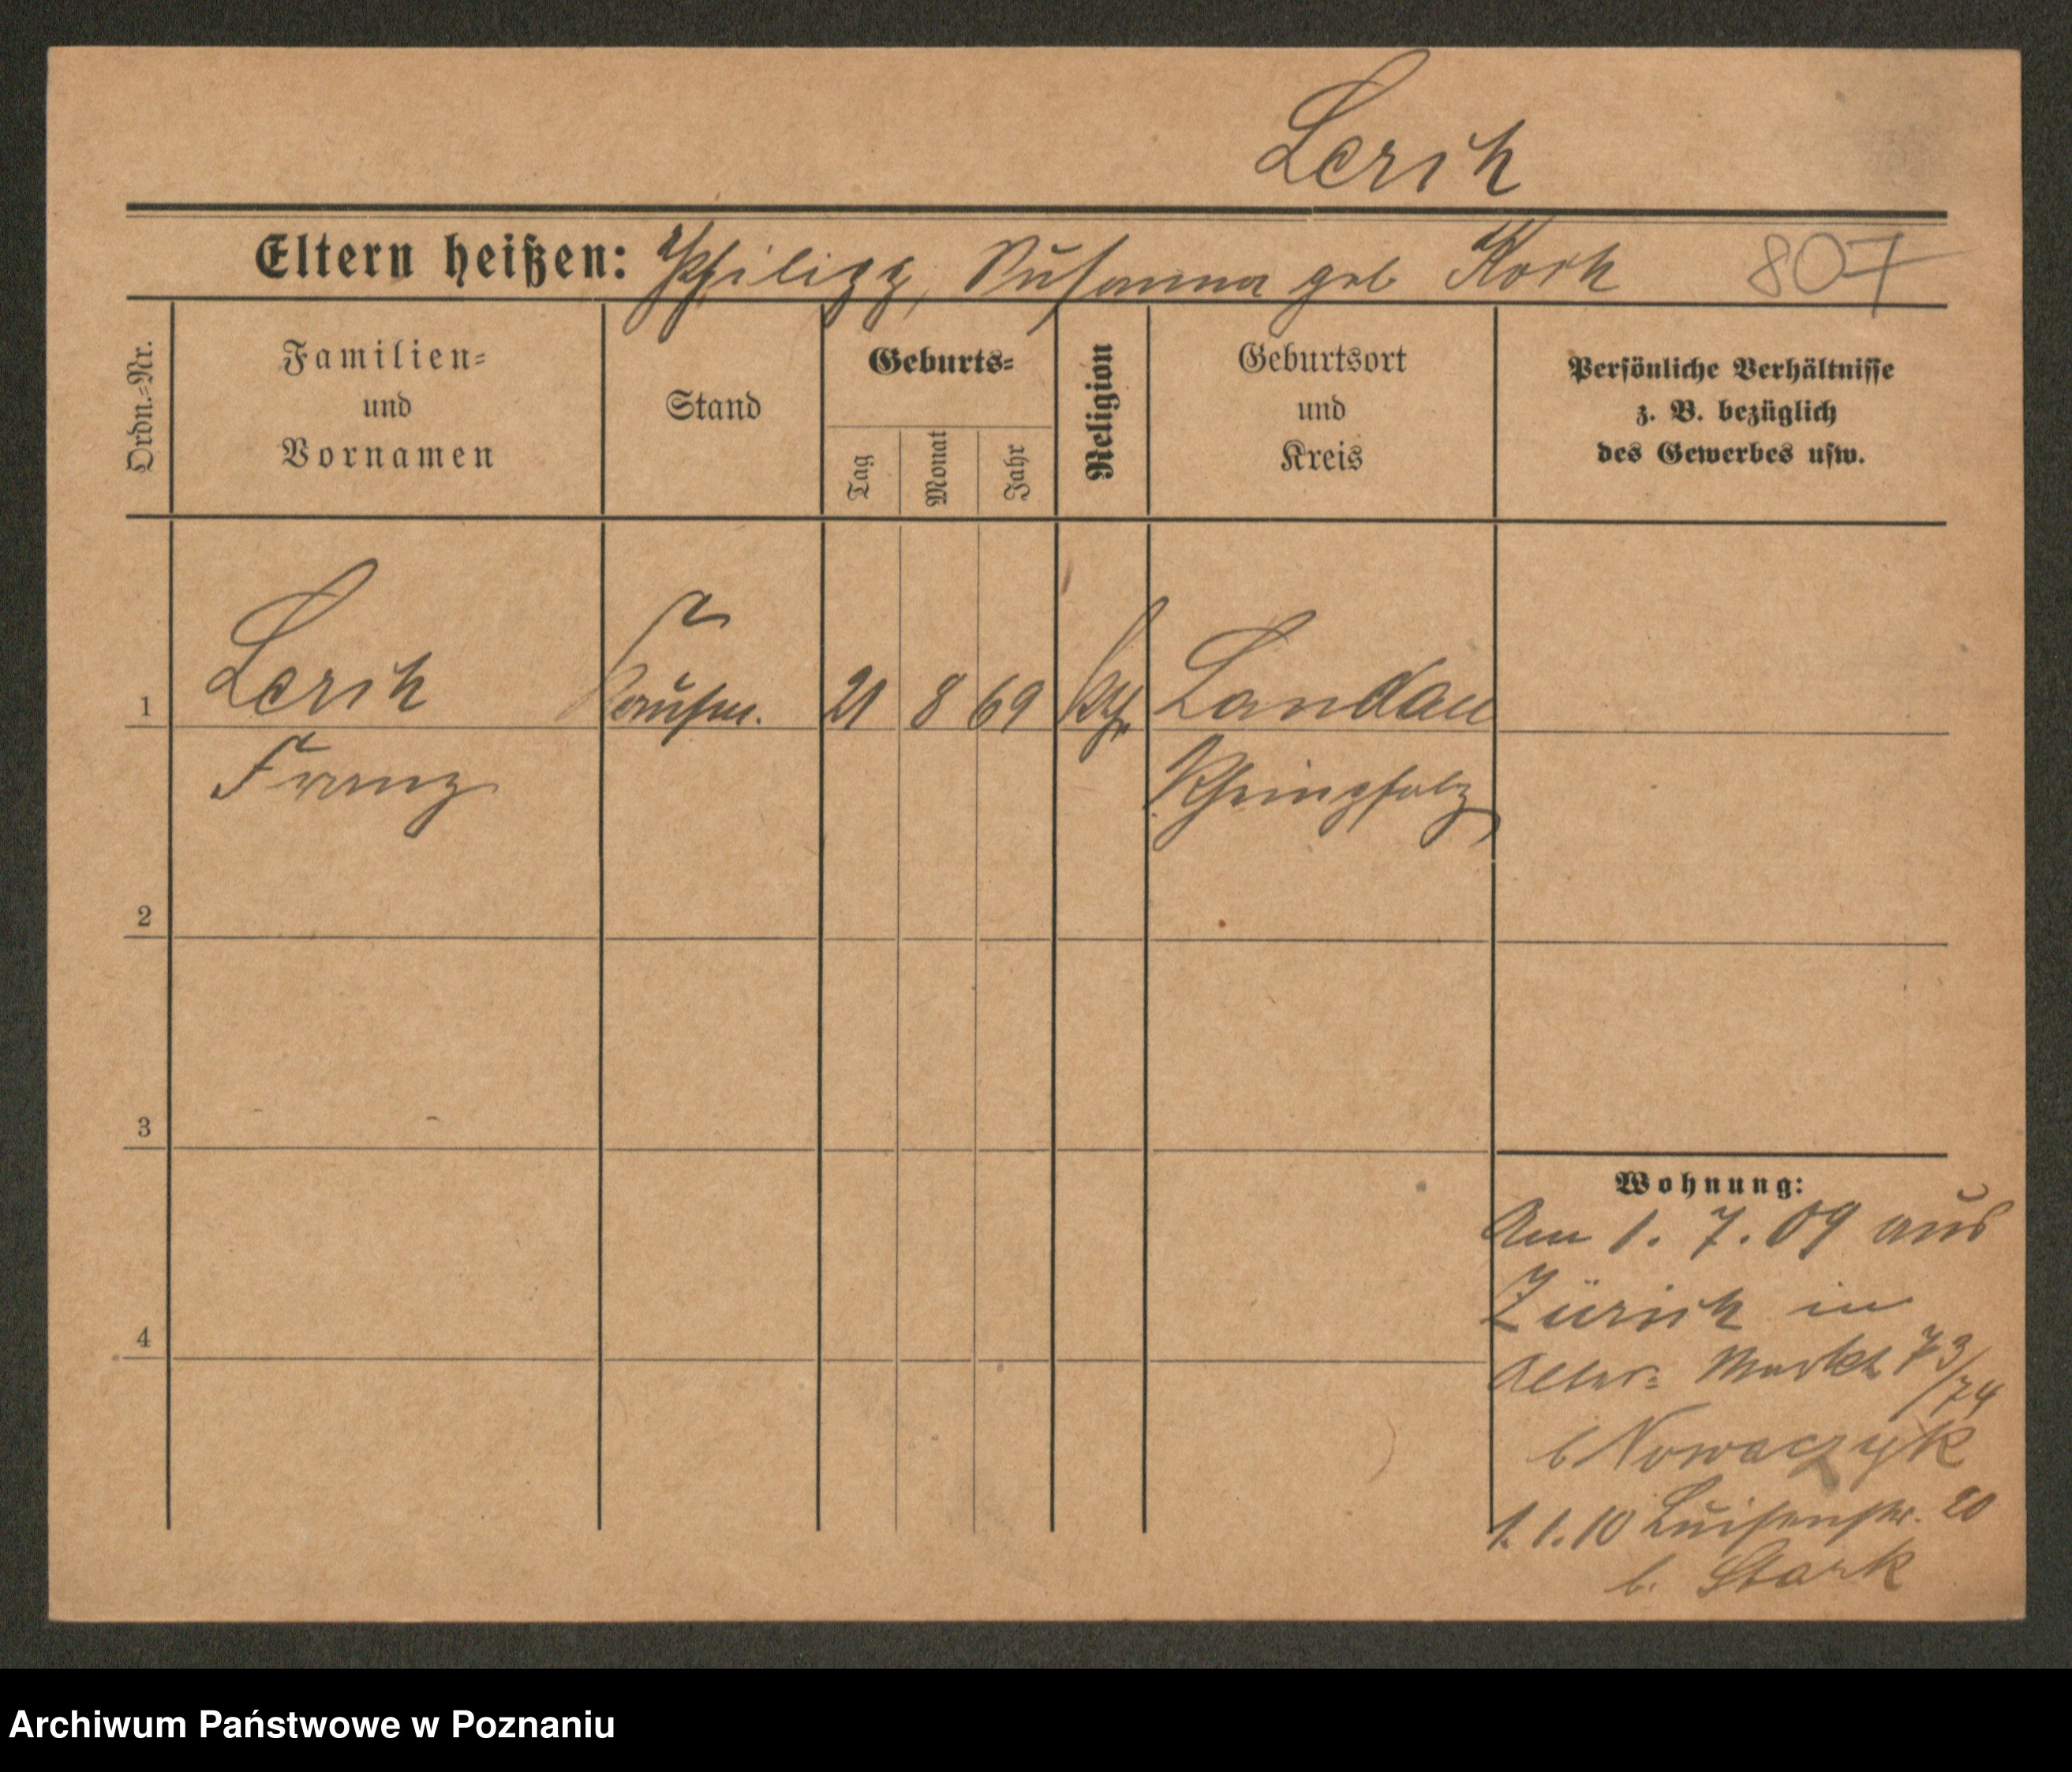 Lerch
Eltern heißen: Philipp, Susanna geb Koch 807
Ordn.=Nr.
Familien=
und
Vornamen
Stand
Geburts=
Tag
Monat
Jahr
Religion
Geburtsort
und
Kreis
Persönliche Verhältnisse
z. B. bezüglich
des Gewerbes usw.
1 Lerch Kaufm. 21 8 69 kth Landau
Franz Rheinpfalz
2
3
Wohnung:
Am 1. 7. 09 aus
Zürich in
4
Alter= Markt 73/74
b Nowaczyk
1. 1. 10 Luisenstr. 20
b. Stark
Archiwum Państwowe w Poznaniu